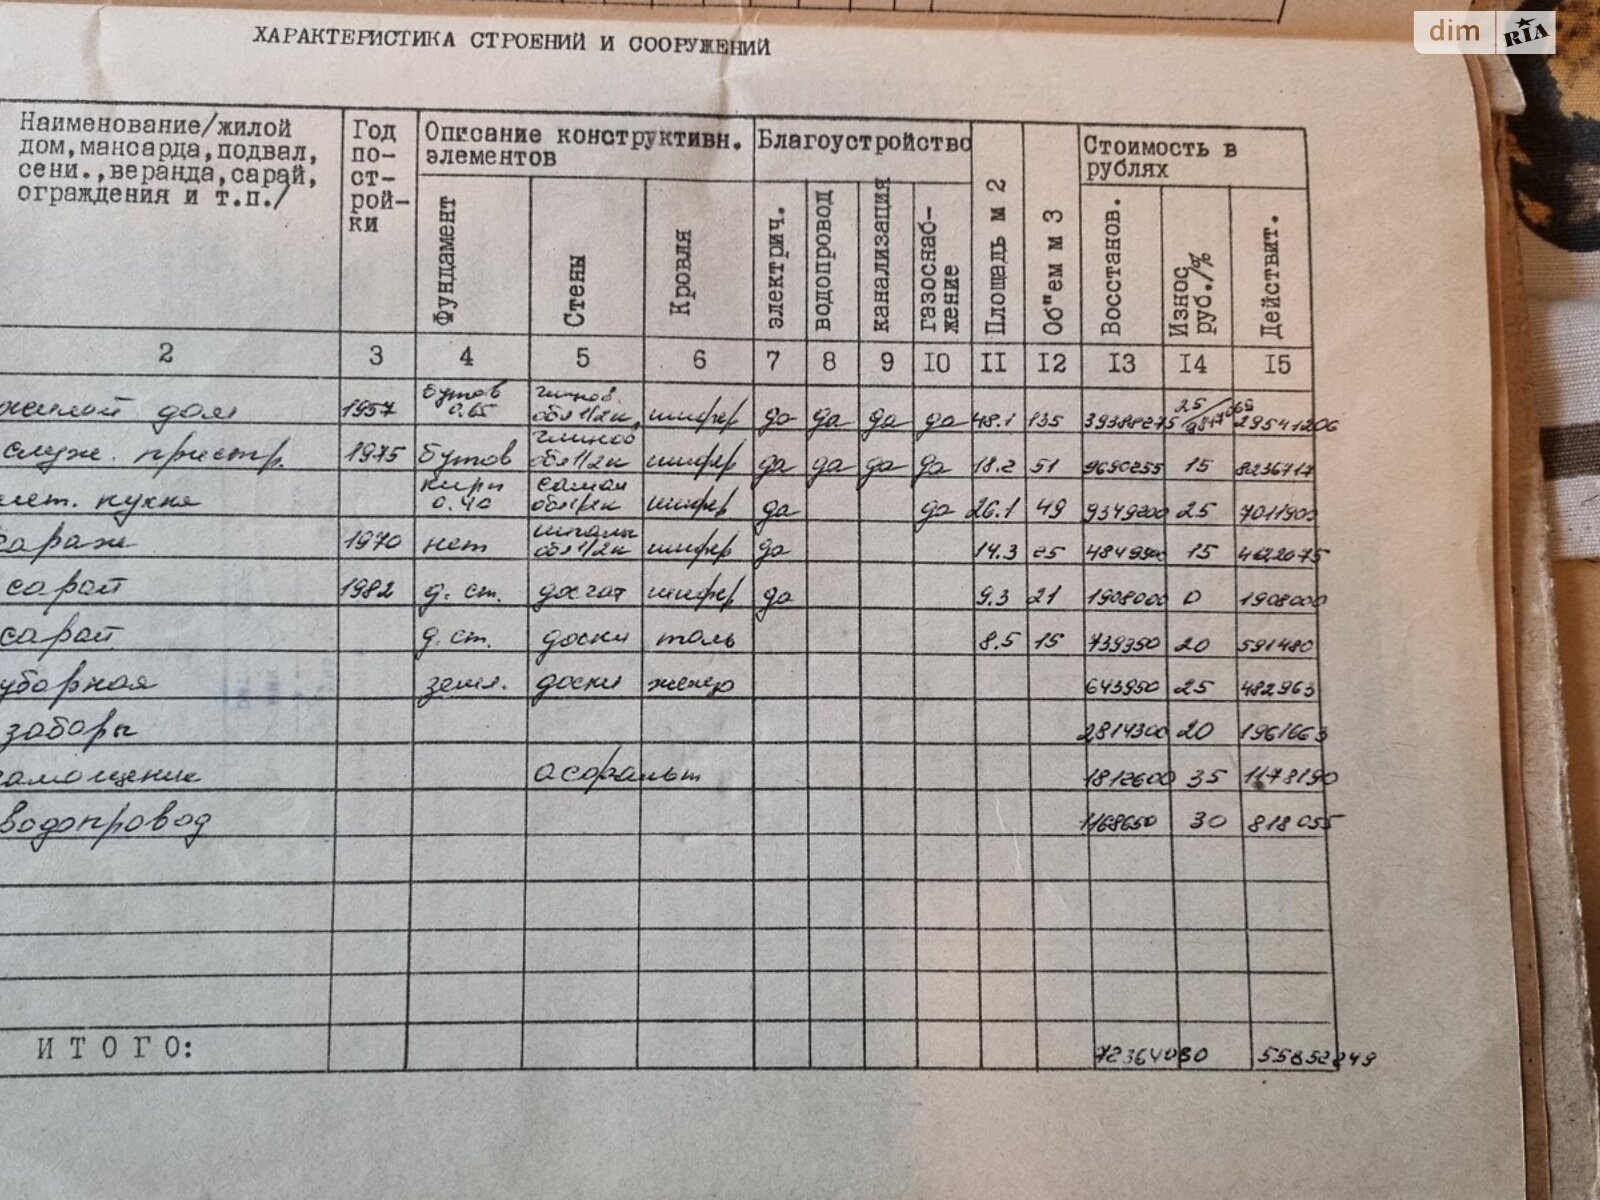 dim RIA
ХАРАКТЕРИСТИКА СТРОЕНИЙ И СООРУЖЕНИЙ
Наименование/жилой дом,мансарда,подвал, сени.,веранда,сарай, ограждения и т.п./
Год по- ст- рой- ки
Описание конструктивн. элементов
Благоустройство
Площадь м 2
Об"ем м 3
Стоимость в рублях
Фундамент
Стены
Кровля
электрич.
водопровод
канализация
газоснаб- жение
Восстанов.
Износ руб./%
Действит.
2 3 4 5 6 7 8 9 IO II I2 I3 I4 I5
жилой дом 1957 бутов 0.65 обл 1/2к, шифер да да да да 48.1 135 39388275 25 29541206
служ. пристр. 1975 бутов обл 1/2к шифер да да да да 18.2 51 9690255 15 8236717
лет. кухня кирп 0.40 саман шифер да да 26.1 49 9349200 25 7011900
гараж 1970 нет шпалы обл 1/2к шифер да 14.3 25 15
сарай 1982 д. ст. дощат шифер да 9.3 21 1908000 0 1908000
сарай д.ст. доски толь 8.5 15 739350 20 591480
уборная земл. доски железо 643950 25 482963
заборы 2814300 20
замощение асфальт 1812600 35 1178190
водопровод 1168650 30 818055
ИТОГО: 72364080 55852249